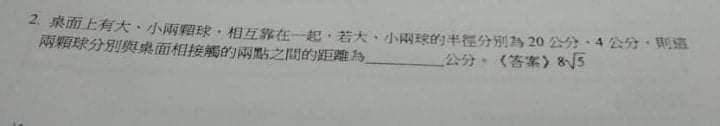 2. 桌面上有大、小兩顆球，相互靠在一起，若大、小兩球的半徑分別為 20 公分、4 公分，則這
兩顆球分別與桌面相接觸的兩點之間的距離為________公分。《答案》8√5